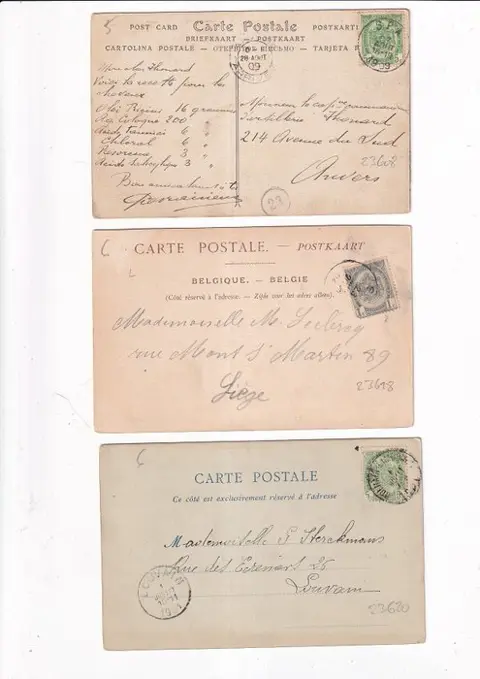 5
POST CARD Carte Postale POSTKARTE
BRIEFKAART — POSTKAART
CARTOLINA POSTALE — ОТКРЫТОЕ ПИСЬМО — TARJETA
28 AOUT
09
1909
Mon cher Thonard
Voici la recette pour les
cheveux
Olei Ricini 16 grammes
Aq Cologne 200 "
Acide Tannici 6 "
Chloral 6 "
Resorcine 3 "
Acide Salicylique 3 "
Bien amicalement à toi
Monsieur le capt commandant
d'artillerie Thonard
214 Avenue du Sud
Anvers
23608
23
6
CARTE POSTALE. — POSTKAART
BELGIQUE. — BELGIE
(Côté réservé à l'adresse. — Zijde voor het adres alleen.)
Mademoiselle M. Leclercq
rue Mont St Martin 89
Liège
23618
6
CARTE POSTALE
Ce côté est exclusivement réservé à l'adresse
Mademoiselle J. Sterckmans
Rue des Ecreniers 26
Louvain
LOUVAIN
23620